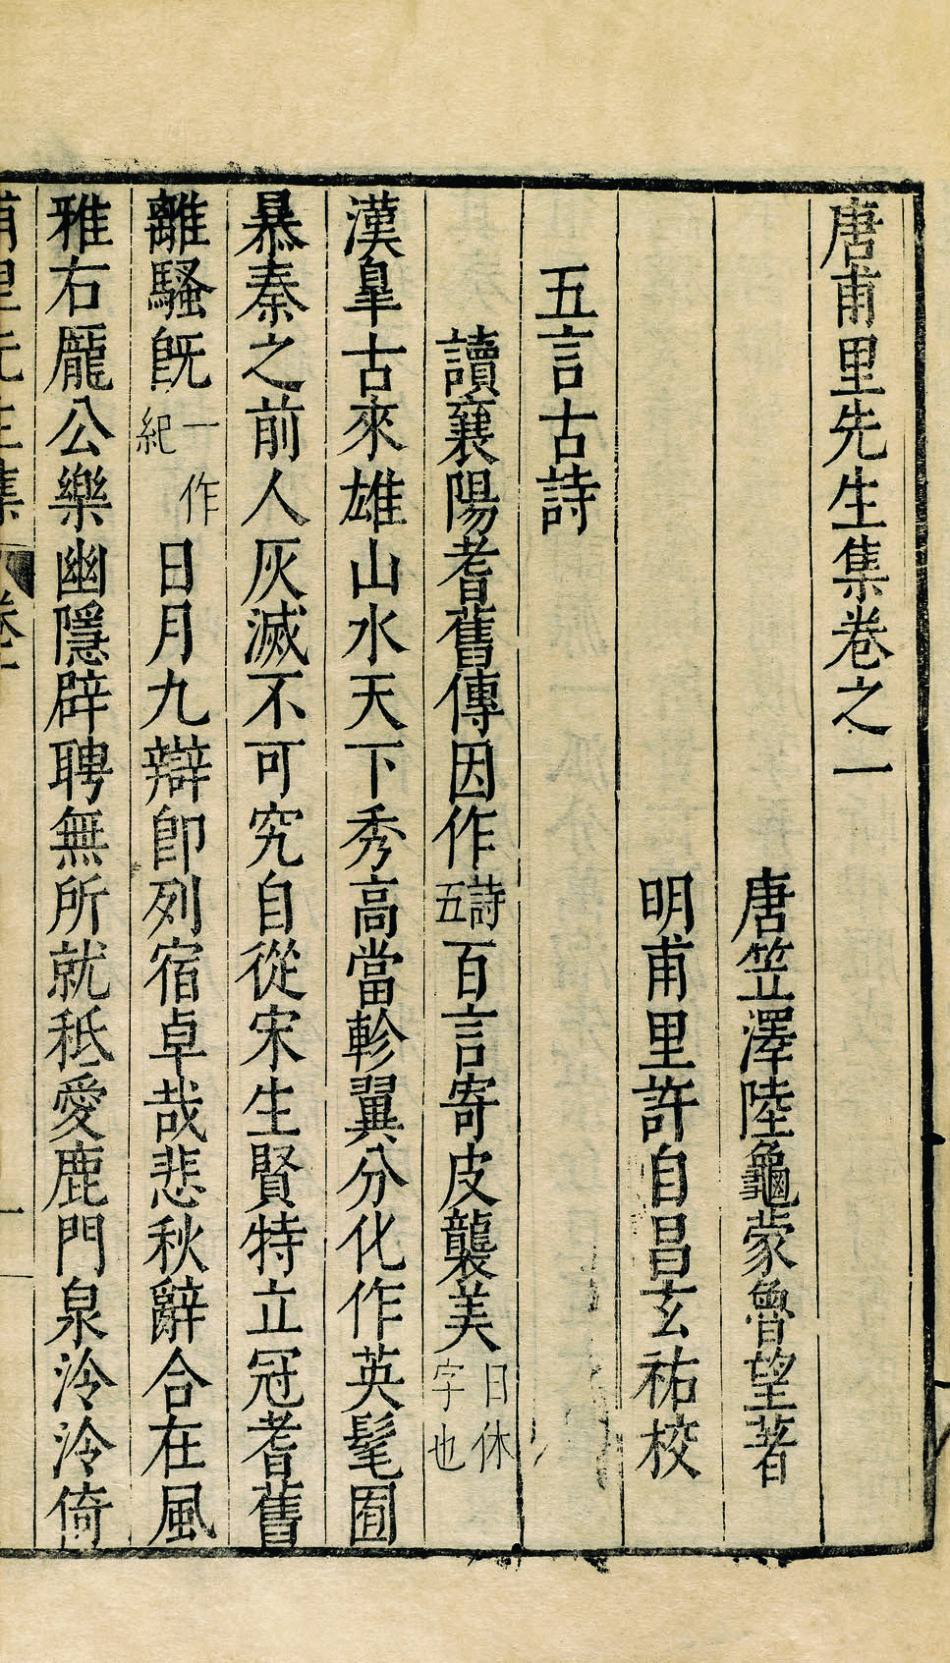 唐甫里先生集卷之一
唐笠澤陸龜蒙魯望著
明甫里許自昌玄祐校
五言古詩
讀襄陽耆舊傳因作詩五百言寄皮襲美日休字也
漢臯古來雄山水天下秀高當軫翼分化作英髦囿
暴秦之前人灰滅不可究自從宋生賢特立冠耆舊
離騷旣一作紀日月九辯卽列宿卓哉悲秋辭合在風
雅右龐公樂幽隱辟聘無所就秪愛鹿門泉泠泠倚
甫里先生集 卷一 一